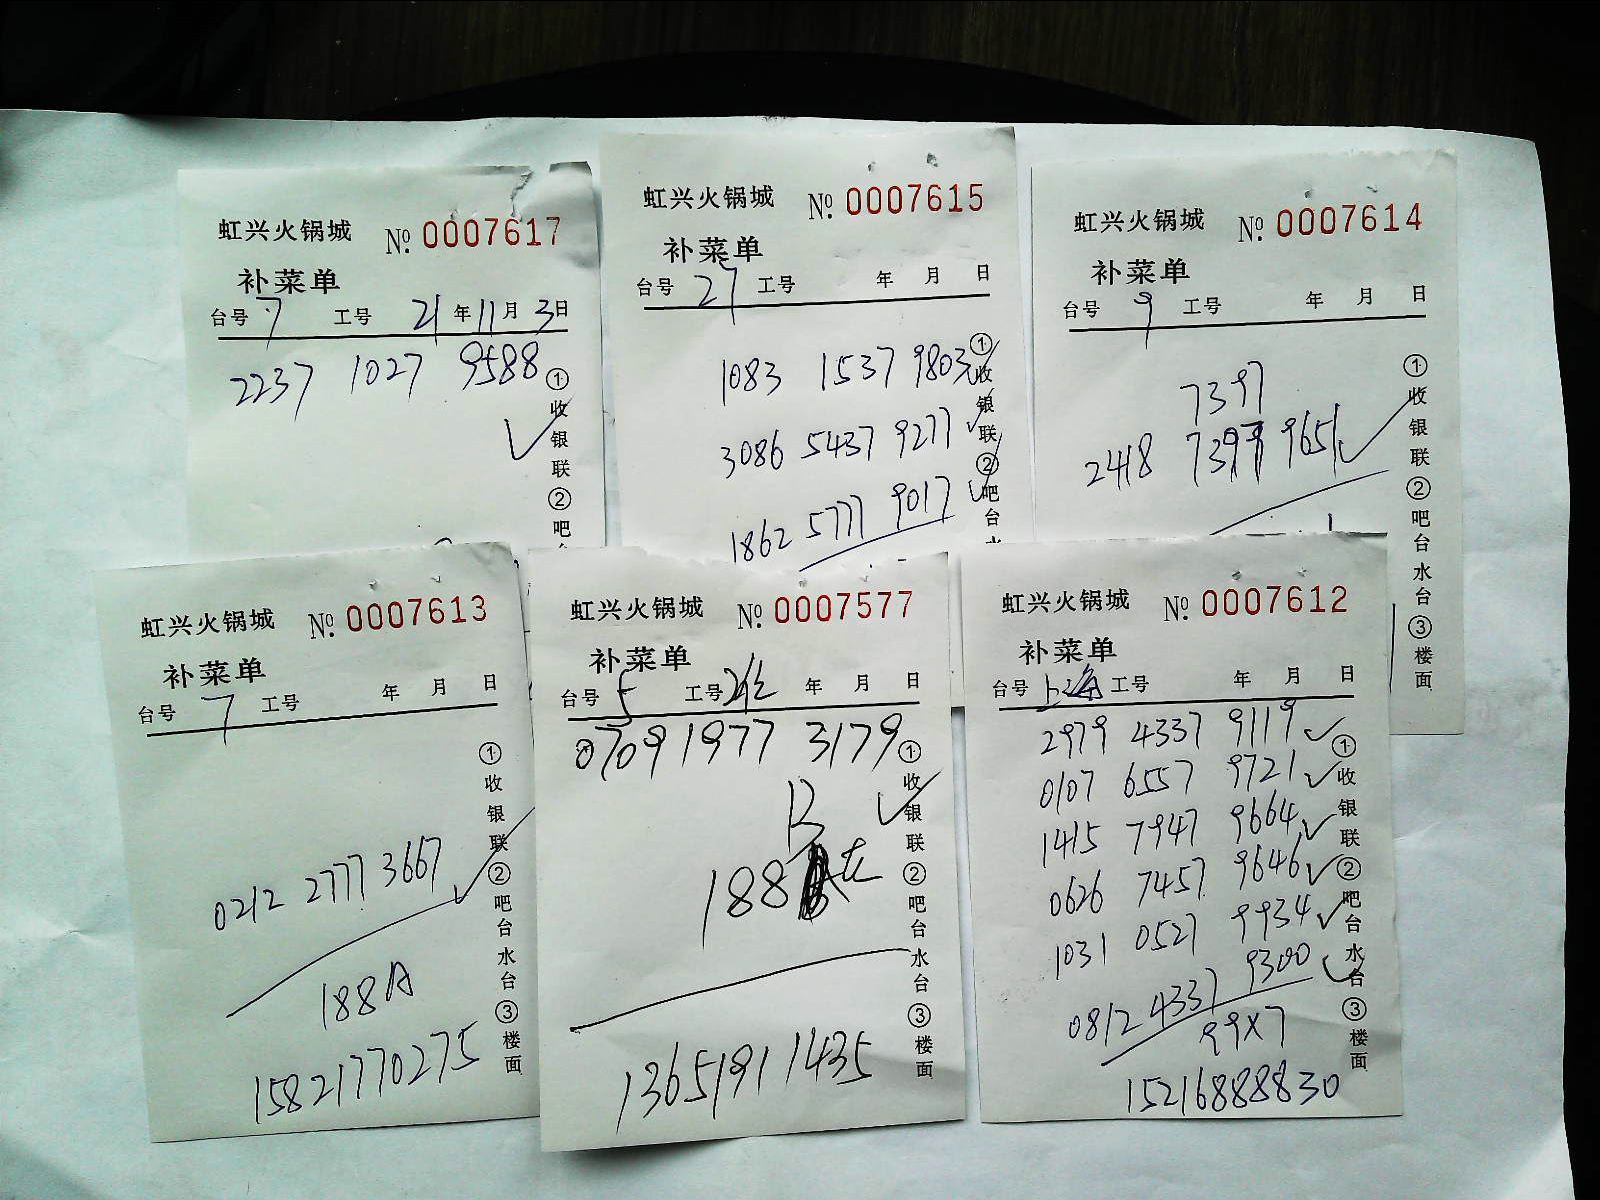 虹兴火锅城 No. 0007617
补菜单
台号 7 工号 21 年 11 月 3 日
2237 1027 9588
①收银联②吧
虹兴火锅城 No. 0007615
补菜单
台号 27 工号 年 月 日
1083 1537 9803
3086 5437 9277
1862 5777 9017
①收银联②吧台水
虹兴火锅城 No. 0007614
补菜单
台号 9 工号 年 月 日
7397
2418 7397 9651
①收银联②吧台水台③楼面
虹兴火锅城 No. 0007613
补菜单
台号 7 工号 年 月 日
0212 2777 3667
188A
15821770275
①收银联②吧台水台③楼面
虹兴火锅城 No. 0007577
补菜单
台号 5 工号 年 月 日
0709 1977 3179
B
188
13651911435
①收银联②吧台水台③楼面
虹兴火锅城 No. 0007612
补菜单
台号 上海 工号 年 月 日
2979 4337 9119
0107 6557 9721
1415 7947 9664
0626 7457 9646
1031 0527 9934
0812 4337 9300
99X7
15216888830
①收银联②吧台水台③楼面